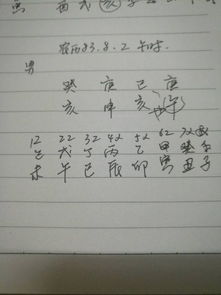 酉 戌 亥
农历83.8.2 午时.
男
癸 庚 己 庚
亥 申 亥 午
12 22 32 42 52 62 72
己 戊 丁 丙 乙 甲 癸
未 午 巳 辰 卯 寅 丑 子